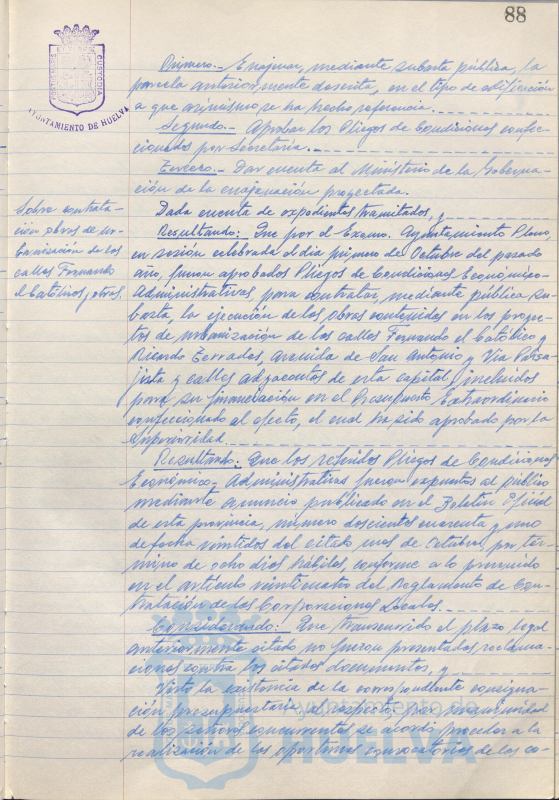 88
PORTUS MARIS ET TERRAE CUSTODIA
AYUNTAMIENTO DE HUELVA
Primero.- Enajenar, mediante subasta pública, la
parcela anteriormente descrita, en el tipo de edificación
a que asimismo se ha hecho referencia.
Segundo.- Aprobar los Pliegos de Condiciones confec-
cionados por Secretaría.
Tercero.- Dar cuenta al Ministerio de la Goberna-
ción de la enajenación proyectada.
Sobre contrata-
ción obras de ur-
banización de las
calles Fernando
el Católico y otras.
Dada cuenta de expedientes tramitados, y
Resultando: Que por el Excmo. Ayuntamiento Pleno,
en sesión celebrada el día primero de Octubre del pasado
año, fueron aprobados Pliegos de Condiciones Económico-
Administrativas, para contratar, mediante pública su-
basta, la ejecución de las obras contenidas en los proyec-
tos de urbanización de las calles Fernando el Católico y
Ricardo Terrades, avenida de San Antonio y Vía Paisa-
jista y calles adyacentes de esta capital, incluidos
para su financiación en el Presupuesto Extraordinario
confeccionado al efecto, el cual ha sido aprobado por la
Superioridad.
Resultando: Que los referidos Pliegos de Condiciones
Económico Administrativas fueron expuestos al público
mediante anuncio publicado en el Boletín Oficial
de esta provincia, número doscientos cuarenta y uno
de fecha veintidos del citado mes de Octubre, por tér-
mino de ocho días hábiles, conforme a lo prevenido
en el artículo veinticuatro del Reglamento de Con-
tratación de las Corporaciones Locales.
Considerando: Que transcurrido el plazo legal
anteriormente citado no fueron presentadas reclama-
ciones contra los citados documentos, y
Visto la existencia de la correspondiente consigna-
ción presupuestaria al respecto, por unanimidad
de los señores concurrentes se acordó proceder a la
realización de las oportunas convocatorias de las co-
Ayuntamiento de
HUELVA